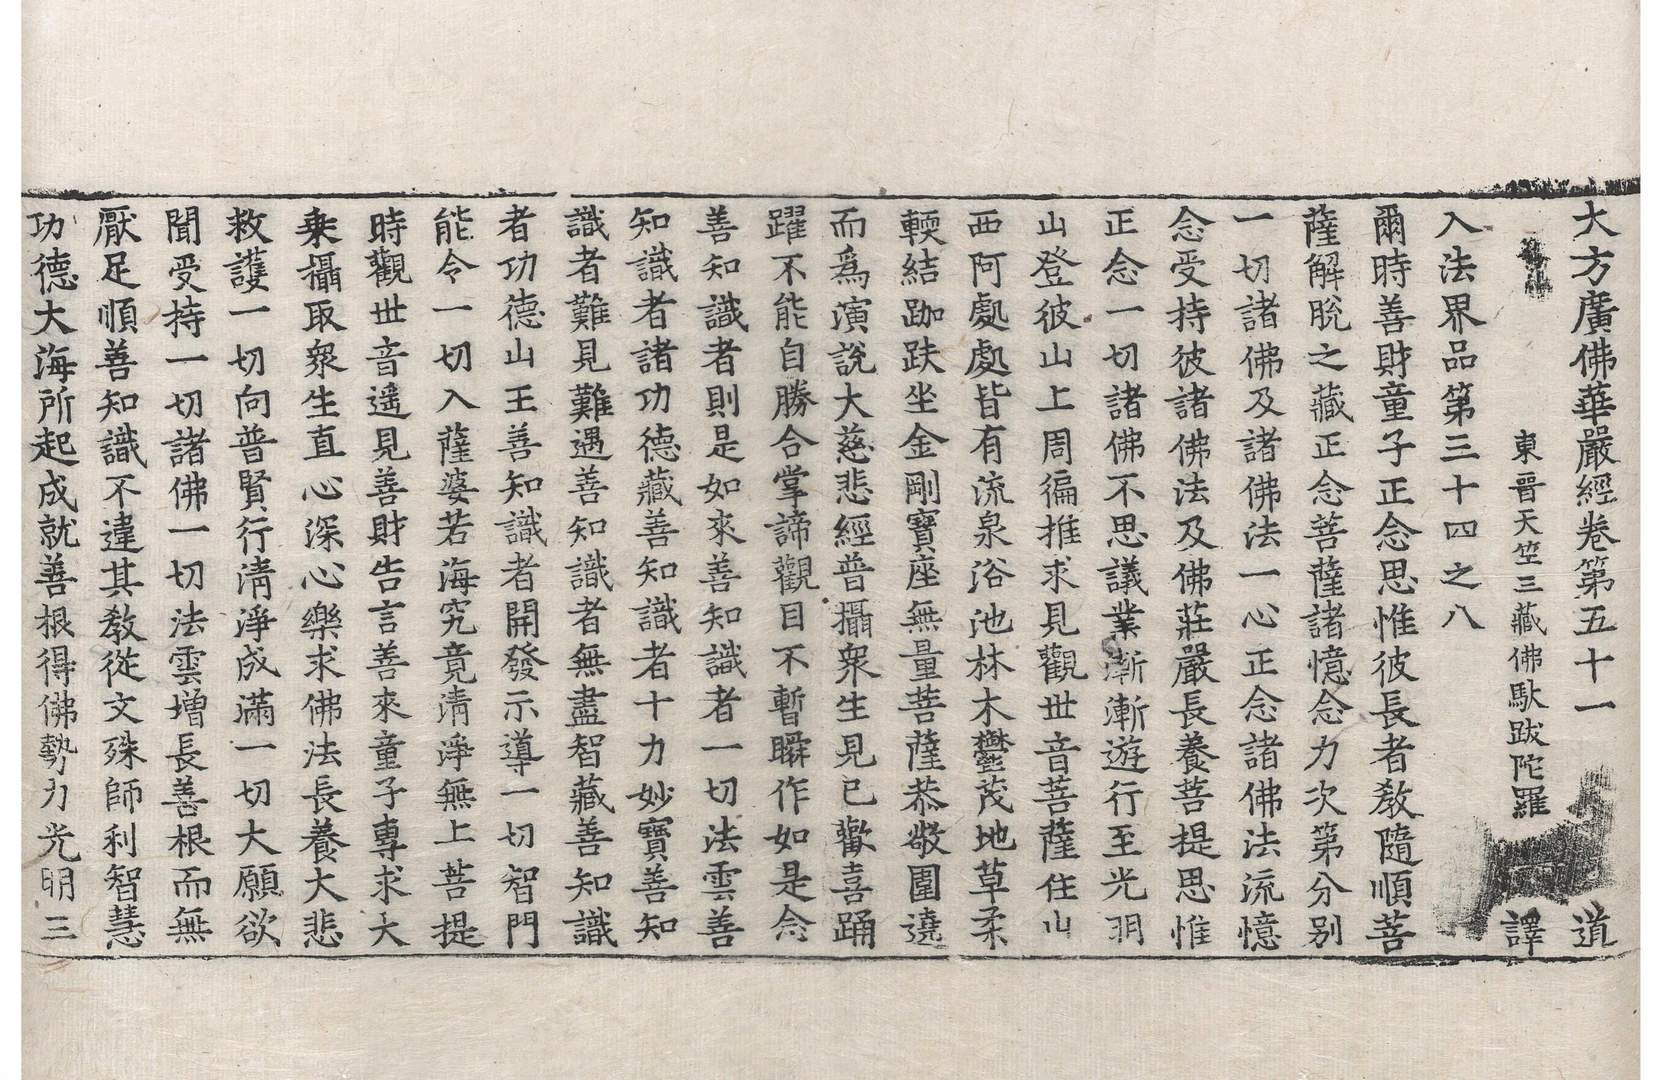 大方廣佛華嚴經卷第五十一　道
東晉天竺三藏佛馱跋陀羅　譯
入法界品第三十四之八
爾時善財童子正念思惟彼長者教隨順菩
薩解脫之藏正念菩薩諸憶念力次第分別
一切諸佛及諸佛法一心正念諸佛法流憶
念受持彼諸佛法及佛莊嚴長養菩提思惟
正念一切諸佛不思議業漸漸遊行至光明
山登彼山上周徧推求見觀世音菩薩住山
西阿處處皆有流泉浴池林木鬱茂地草柔
輭結跏趺坐金剛寶座無量菩薩恭敬圍遶
而爲演說大慈悲經普攝衆生見已歡喜踊
躍不能自勝合掌諦觀目不暫瞬作如是念
善知識者則是如來善知識者一切法雲善
知識者諸功德藏善知識者十力妙寶善知
識者難見難遇善知識者無盡智藏善知識
者功德山王善知識者開發示導一切智門
能令一切入薩婆若海究竟清淨無上菩提
時觀世音遥見善財告言善來童子專求大
乗攝取衆生直心深心樂求佛法長養大悲
救護一切向普賢行清淨成滿一切大願欲
聞受持一切諸佛一切法雲增長善根而無
厭足順善知識不違其教從文殊師利智慧
功德大海所起成就善根得佛勢力光明三